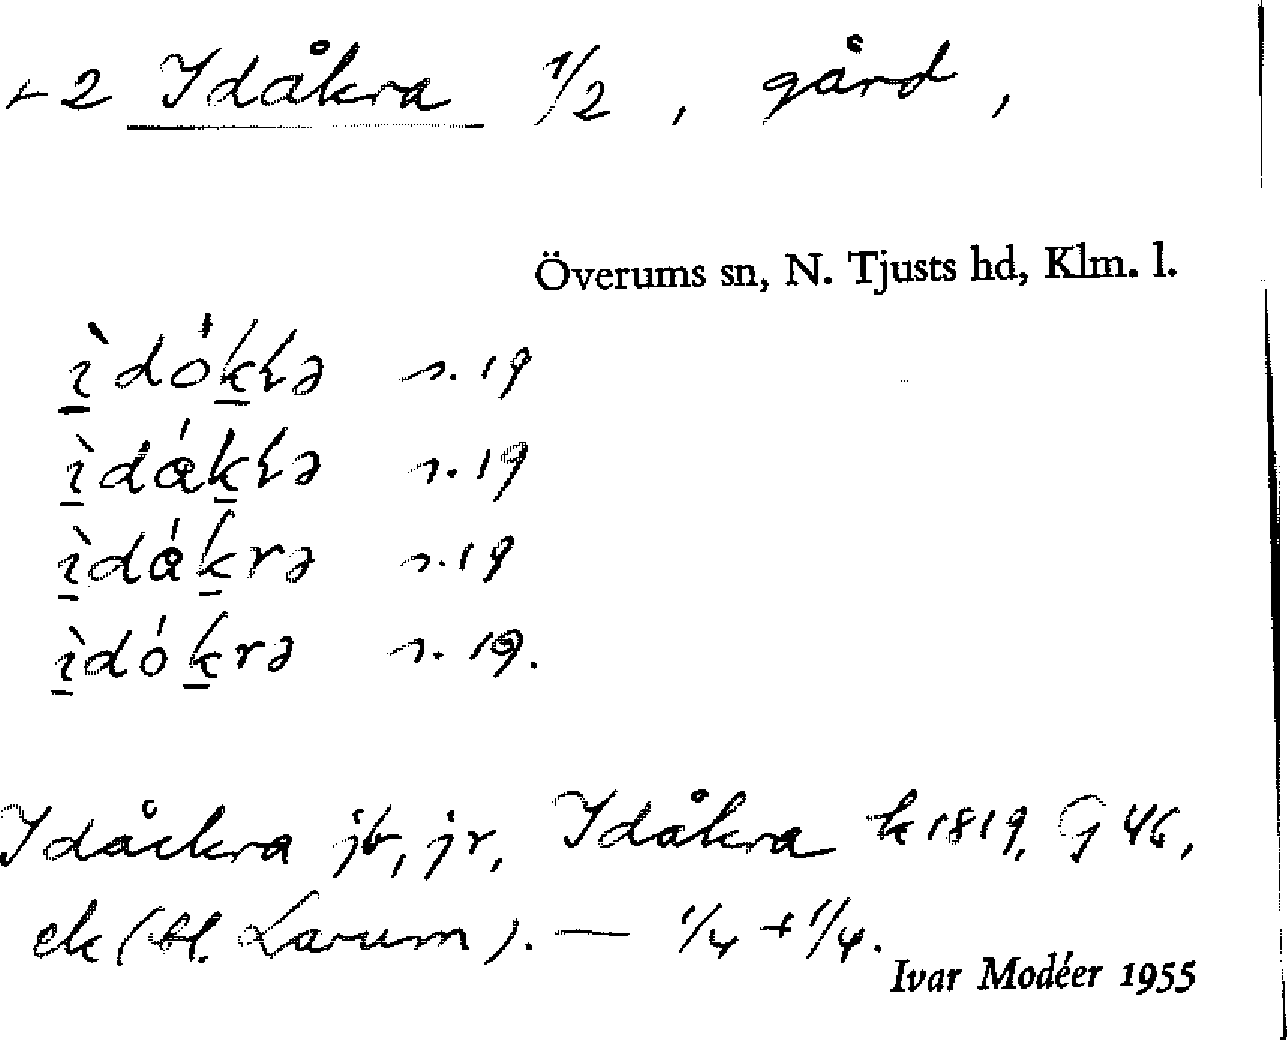 +2 Idåkra 1/2, gård,
Överums sn, N. Tjusts hd, Klm. l.
ı̀dókɩə s. 19
ı̀dákɩə s. 19
ı̀dákrə s. 19
ı̀dókrə s. 19.
Idåckra jb, jr, Idåkra k 1819, G 46,
ek (bl. Larum). — 1/4 + 1/4.
Ivar Modéer 1955